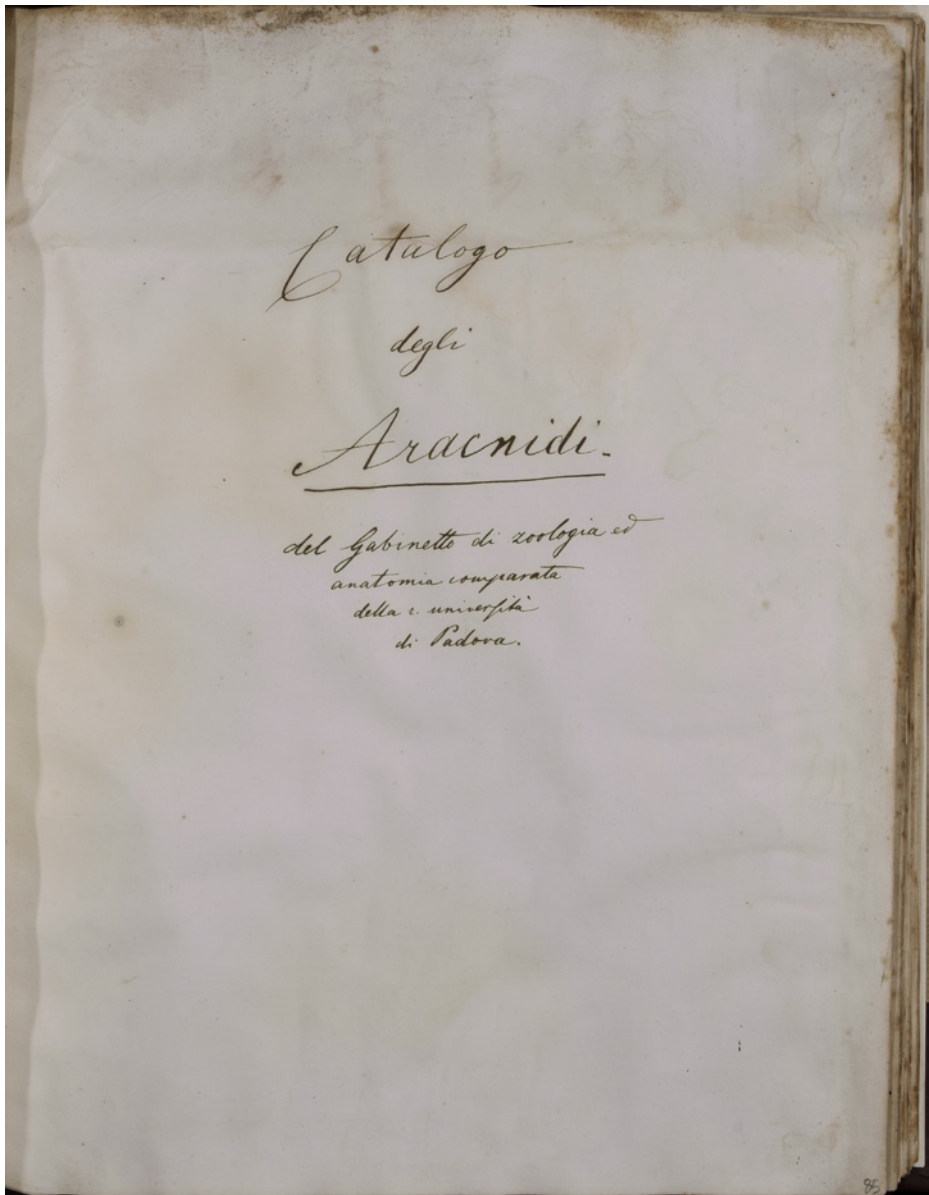 Catalogo
degli
Aracnidi.
del Gabinetto di zoologia ed
anatomia comparata
della r. università
di Padova.
85